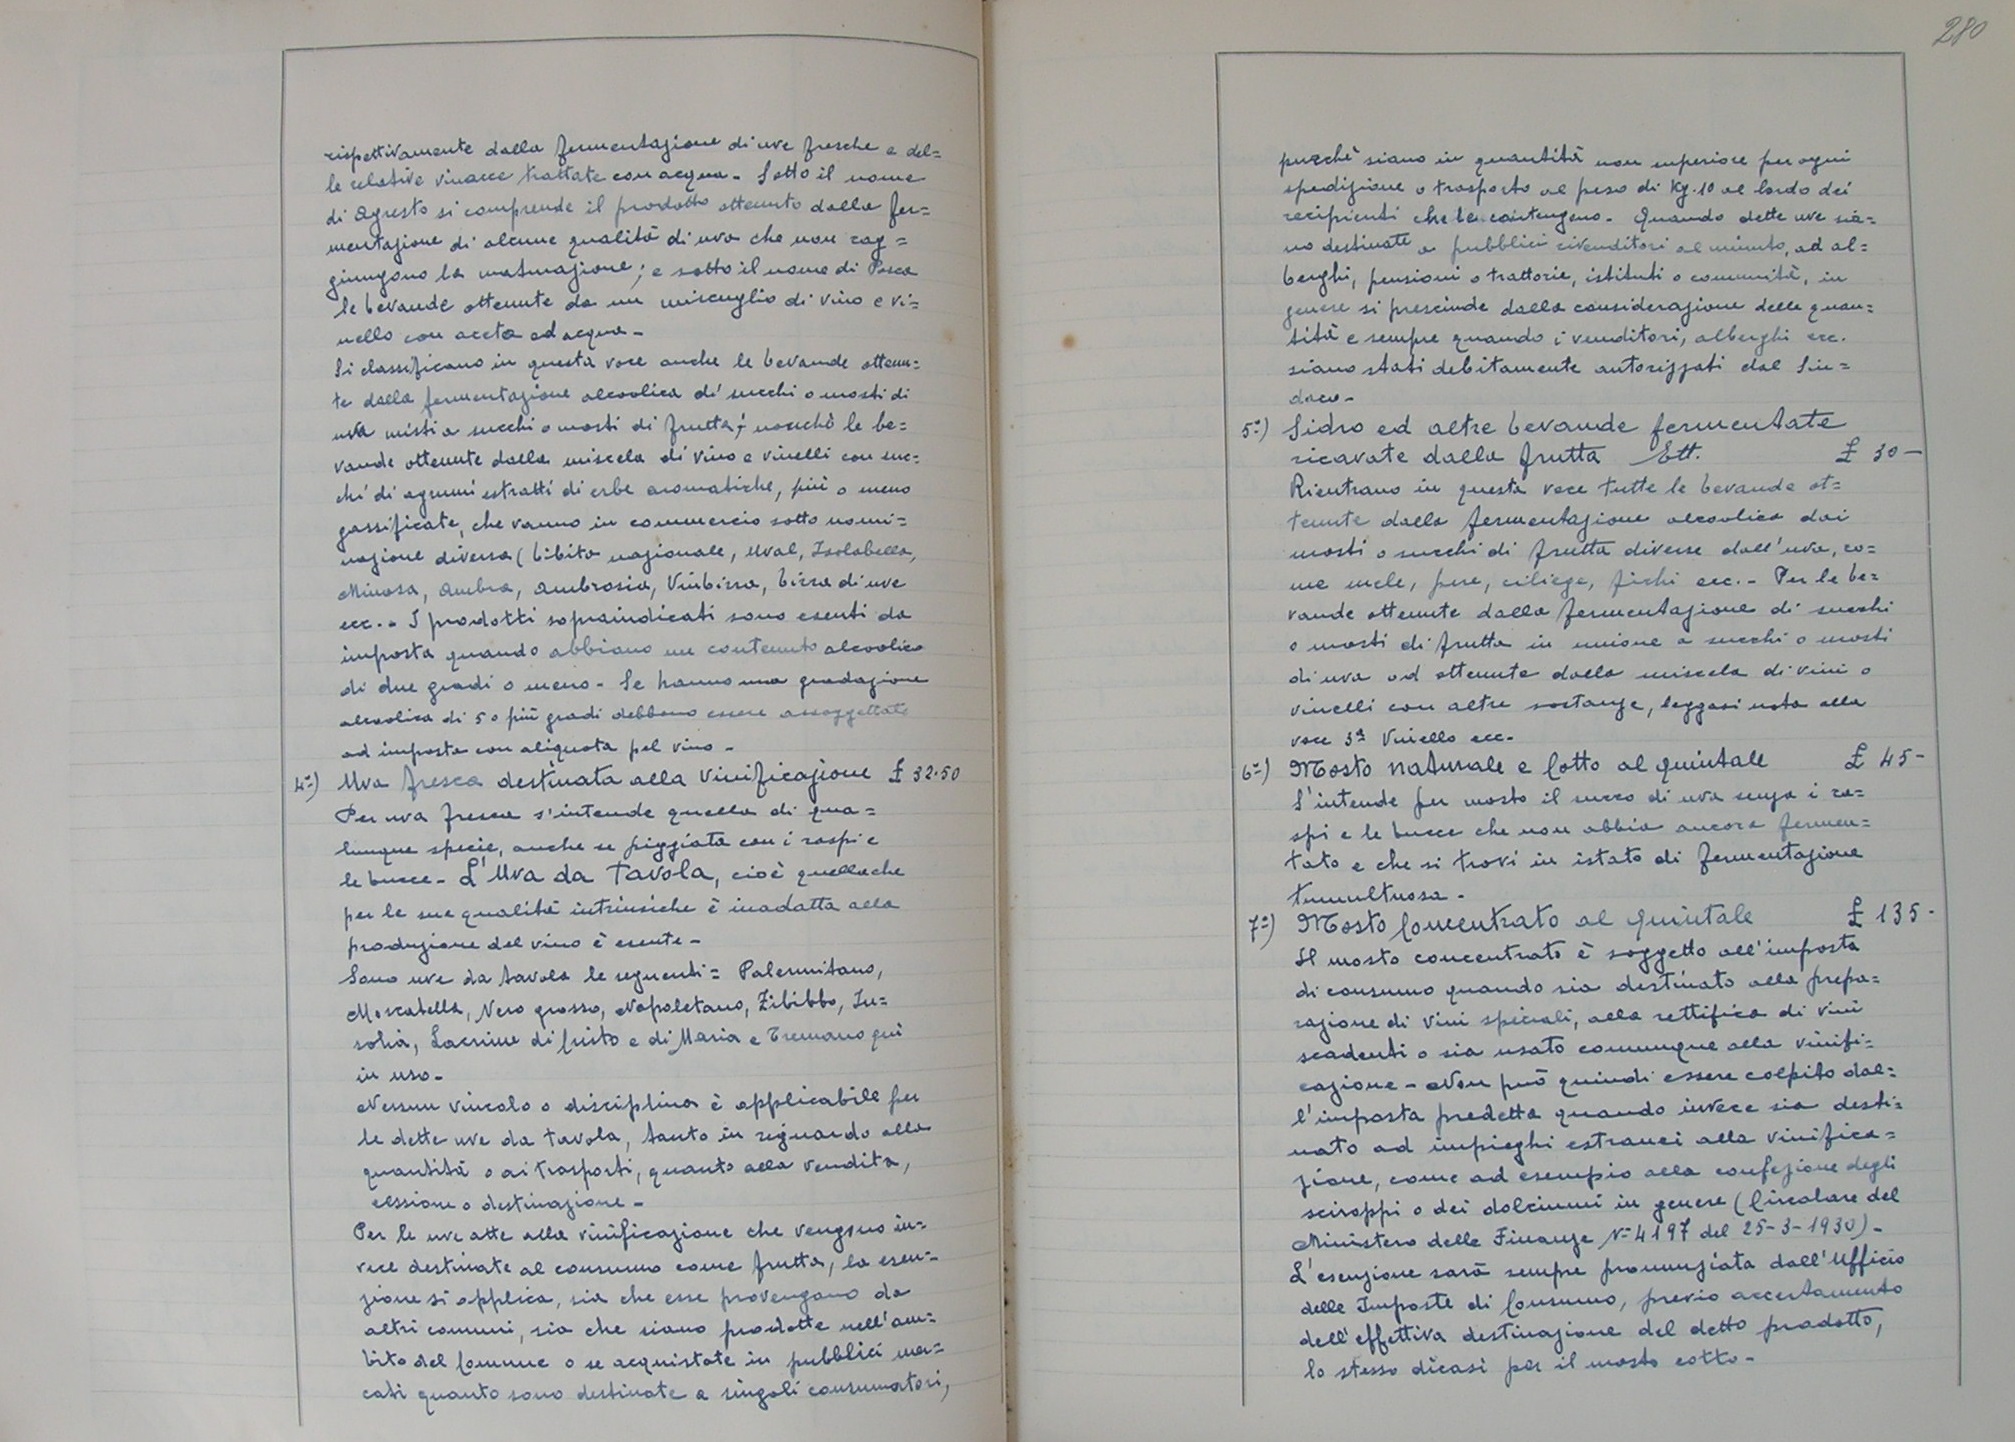 rispettivamente dalla fermentazione di uve fresche e del=
le relative vinacce trattate con acqua - Sotto il nome
di Agresto si comprende il prodotto ottenuto dalla fer=
mentazione di alcune qualità di uva che non rag=
giungono la maturazione; e sotto il nome di Posca
le bevande ottenute da un miscuglio di vino e vi=
nello con aceto ad acqua -
Si classificano in questa voce anche le bevande ottenu=
te dalla fermentazione alcoolica di succhi o mosti di
uva misti a succhi o mosti di frutta; nonchè le be=
vande ottenute dalla miscela di vino e vinelli con suc=
chi di agrumi estratti di erbe aromatiche, più o meno
gassificate, che vanno in commercio sotto nomi=
nazione diversa (bibita nazionale, uval, Isolabella,
Mimosa, Ambra, Ambrosia, Vinbirra, birra di uve
ecc. - I prodotti sopraindicati sono esenti da
imposta quando abbiano un contenuto alcoolico
di due gradi o meno - Se hanno una gradazione
alcoolica di 5 o più gradi debbono essere assoggettate
ad imposta con aliquota pel vino -
4°) Uva fresca destinata alla vinificazione £ 32.50
Per uva fresca s'intende quella di qua=
lunque specie, anche se piggiata con i raspi e
le bucce - L'Uva da Tavola, cioè quella che
per le sue qualità intrinsiche è inadatta alla
produzione del vino è esente -
Sono uve da tavola le seguenti = Palermitano,
Moscatella, Nero grosso, Napoletano, Zibibbo, In=
solia, Lacrime di Cristo e di Maria e Tremano qui
in uso -
Nessun vincolo o disciplina è applicabile per
le dette uve da tavola, tanto in riguardo alla
quantità o ai trasporti, quanto alla vendita,
cessione o destinazione -
Per le uve atte alla vinificazione che vengono in=
vece destinate al consumo come frutta, la esen=
zione si applica, sia che esse provengano da
altri comuni, sia che siano prodotte nell'am=
bito del Comune o se acquistate in pubblici mer=
cati quanto sono destinate a singoli consumatori,
280
purchè siano in quantità non superiore per ogni
spedizione o trasporto al peso di Kg. 10 al lordo dei
recipienti che le contengono - Quando dette uve sia=
no destinate a pubblici rivenditori al minuto, ad al=
berghi, pensioni o trattorie, istituti o comunità, in
genere si prescinde dalla considerazione delle quan=
tità e sempre quando i venditori, alberghi ecc.
siano stati debitamente autorizzati dal Sin=
daco -
5°) Sidro ed altre bevande fermentate
ricavate dalla frutta Ett. £ 30 -
Rientrano in questa voce tutte le bevande ot=
tenute dalla fermentazione alcoolica dai
mosti o succhi di frutta diverse dall'uva, co=
me mele, pere, ciliege, fichi ecc. - Per le be=
vande ottenute dalla fermentazione di succhi
o mosti di frutta in unione a succhi o mosti
di uva od ottenute dalla miscela di vini o
vinelli con altre sostanze, leggasi nota alla
voce 3ª Vinello ecc -
6°) Mosto naturale e Cotto al quintale £ 45 -
S'intende per mosto il succo di uva senza i ra=
spi e le bucce che non abbia ancora fermen=
tato e che si trovi in istato di fermentazione
tumultuosa -
7°) Mosto Concentrato al quintale £ 135 -
Il mosto concentrato è soggetto all'imposta
di consumo quando sia destinato alla prepa=
razione di vini speciali, alla rettifica di vini
scadenti o sia usato comunque alla vinifi=
cazione - Non può quindi essere colpito dal=
l'imposta predetta quando invece sia desti=
nato ad impieghi estranei alla vinifica=
zione, come ad esempio alla confezione degli
sciroppi o dei dolciumi in genere (Circolare del
Ministero delle Finanze N° 4197 del 25-3-1930) -
L'esenzione sarà sempre pronunziata dall'Ufficio
delle Imposte di Consumo, previo accertamento
dell'effettiva destinazione del detto prodotto,
lo stesso dicasi per il mosto cotto -